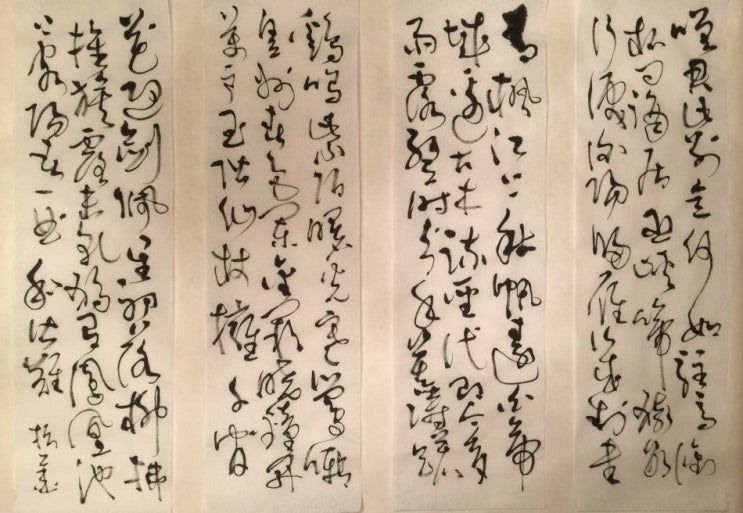 嗟君此別意何如駐馬銜
杯問謫居巫峽啼猿數
行淚衡陽歸雁幾封書
青楓江上秋帆遠白帝
城邊古木疏聖代即今多
雨露暫時分手莫躊躇
鷄鳴紫陌曙光寒鶯囀
皇州春色闌金闕曉鐘開
萬戶玉階仙仗擁千官
花迎劍佩星初落柳拂
旌旗露未乾獨有鳳凰池
上客陽春一曲和皆難